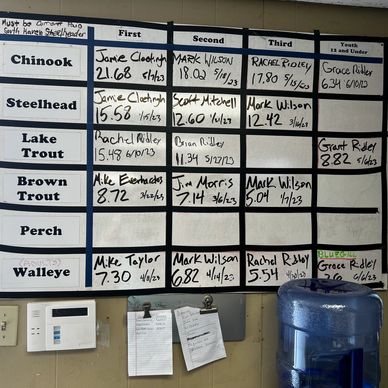 Must be current paid
South Haven Steelheader
First Second Third Youth
12 and Under
Chinook
Jamie Clootingh
21.68 5/7/23
MARK WILSON
18.00 5/15/23
RACHEL RIDLEY
17.80 5/15/23
Grace Ridley
6.34 6/10/23
Steelhead
Jamie Clootingh
15.58 1/15/23
Scott Mitchell
12.60
Mark Wilson
12.42
Lake
Trout
Rachel Ridley
15.48 6/10/23
Brian Ridley
11.34 5/27/23
Grant Ridley
8.82 5/6/23
Brown
Trout
Mike Everhardus
8.72 3/22/23
Jim Morris
7.14 3/6/23
Mark Wilson
5.04 1/7/23
Perch
Walleye
Mike Taylor
7.30
Mark Wilson
6.82 4/14/23
Rachel Ridley
5.54
BLUEGILL
Grace Ridley